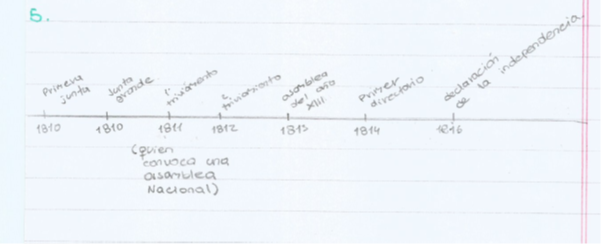 5.
Primera
junta
Junta
grande
1°
triunvirato
2°
triunvirato
asamblea
del año
XIII
Primer
directorio
declaración
de la independencia
1810
1810
1811
1812
1813
1814
1816
(quien
convoca una
asamblea
Nacional)